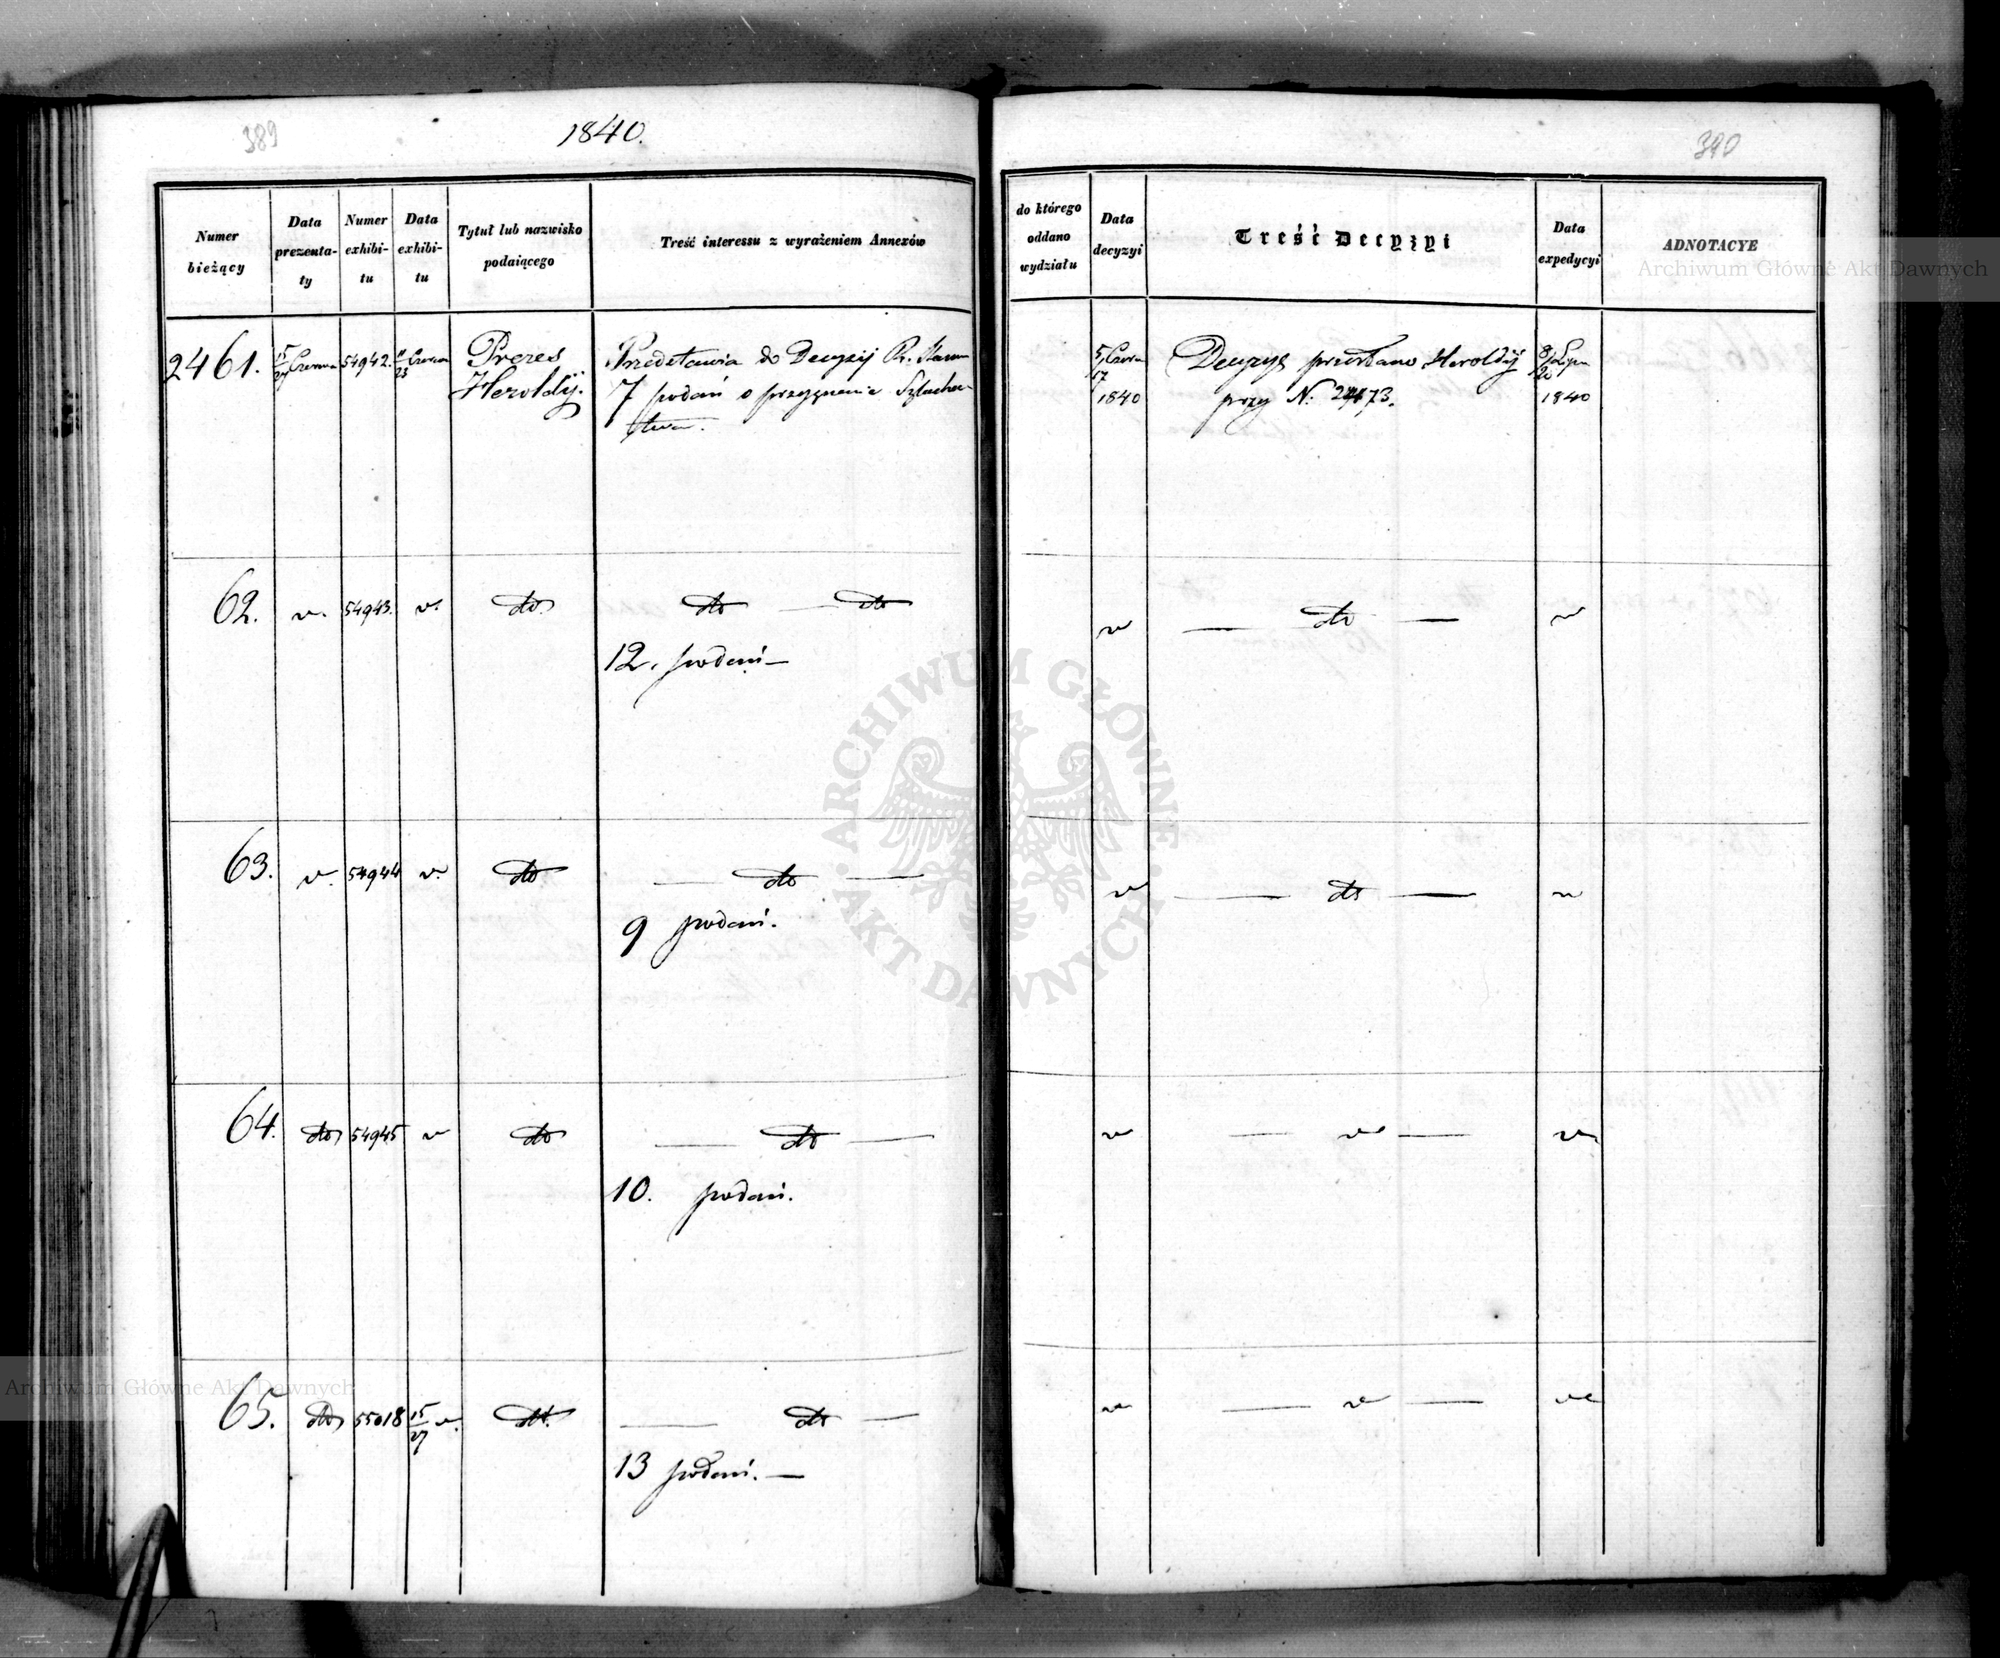 389
1840.
390
Numer bieżący
Data prezenta- ty
Numer exhibi- tu
Data exhibi- tu
Tytuł lub nazwisko podaiącego
Treść interessu z wyrażeniem Annexów
do którego oddano wydziału
Data decyzyi
Treść Decyzyi
Data expedycyi
ADNOTACYE
2461.
15/27 Czerwca
54942.
11/23 Czerwca
Prezes
Heroldij.
Przedstawia do Decyzij R. Stanu
7 podań o przyznanie Szlachec
twa.
5/17 Czerw
1840
Decyzye przesłano Heroldij
przy N.
8/20 Lipca
1840
62.
v.
54943.
v.
do.
do — do
12. podań —
v
— do —
v
63.
v.
54944
v.
do
— do —
9 podań.
v
— do —
v
64.
do
54945
v
do
— do —
10. podań.
v
— v —
v
65.
do
55018
15/27 v.
do.
— do —
13 podań. —
v
— v —
v
ARCHIWUM GŁÓWNE AKT DAWNYCH
Archiwum Główne Akt Dawnych
Archiwum Główne Akt Dawnych